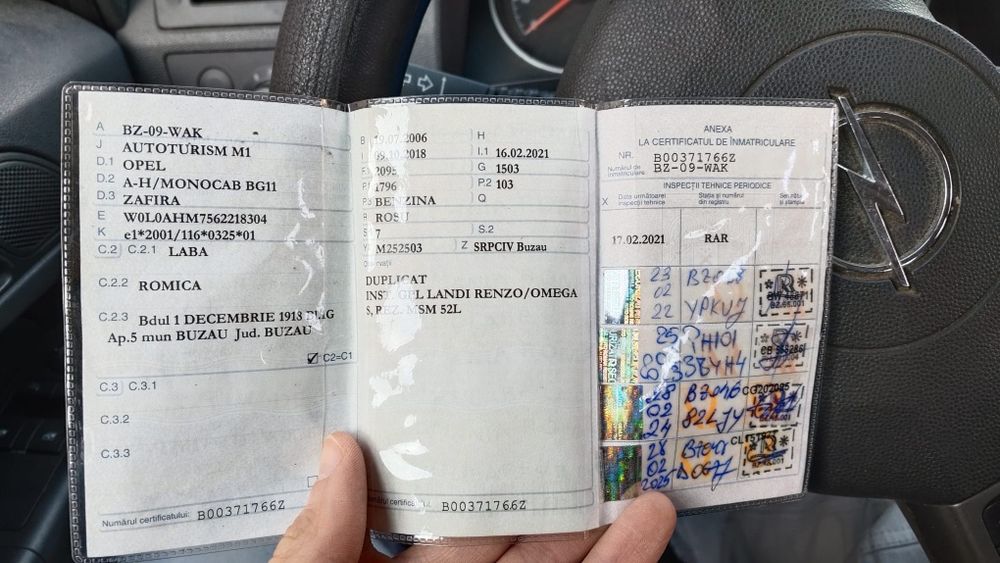 A BZ-09-WAK
J AUTOTURISM M1
D.1 OPEL
D.2 A-H/MONOCAB BG11
D.3 ZAFIRA
E W0L0AHM7562218304
K e1*2001/116*0325*01
C.2 C.2.1 LABA
C.2.2 ROMICA
C.2.3 Bdul 1 DECEMBRIE 1918
Ap.5 mun BUZAU Jud. BUZAU
C2=C1
C.3 C.3.1
C.3.2
C.3.3
Numărul certificatului: B00371766Z
B 19.07.2006 H
I 09.10.2018 I.1 16.02.2021
2095 G 1503
1796 P.2 103
P.3 BENZINA Q
R ROSU
7 S.2
M252503 Z SRPCIV Buzau
DUPLICAT
INST. GPL LANDI RENZO/OMEGA
S, REZ. MSM 52L
Numărul certificatului: B00371766Z
ANEXA
LA CERTIFICATUL DE ÎNMATRICULARE
NR. B00371766Z
Numărul de
înmatriculare BZ-09-WAK
INSPECȚII TEHNICE PERIODICE
X Data următoarei
inspecții tehnice
Stația și numărul
din registru
Semnătura
și ștampila
17.02.2021 RAR
23
02
22 YPKUJ
25 RH101
28 BZ046 CG202085
02 82LJY
24
28
02
2025